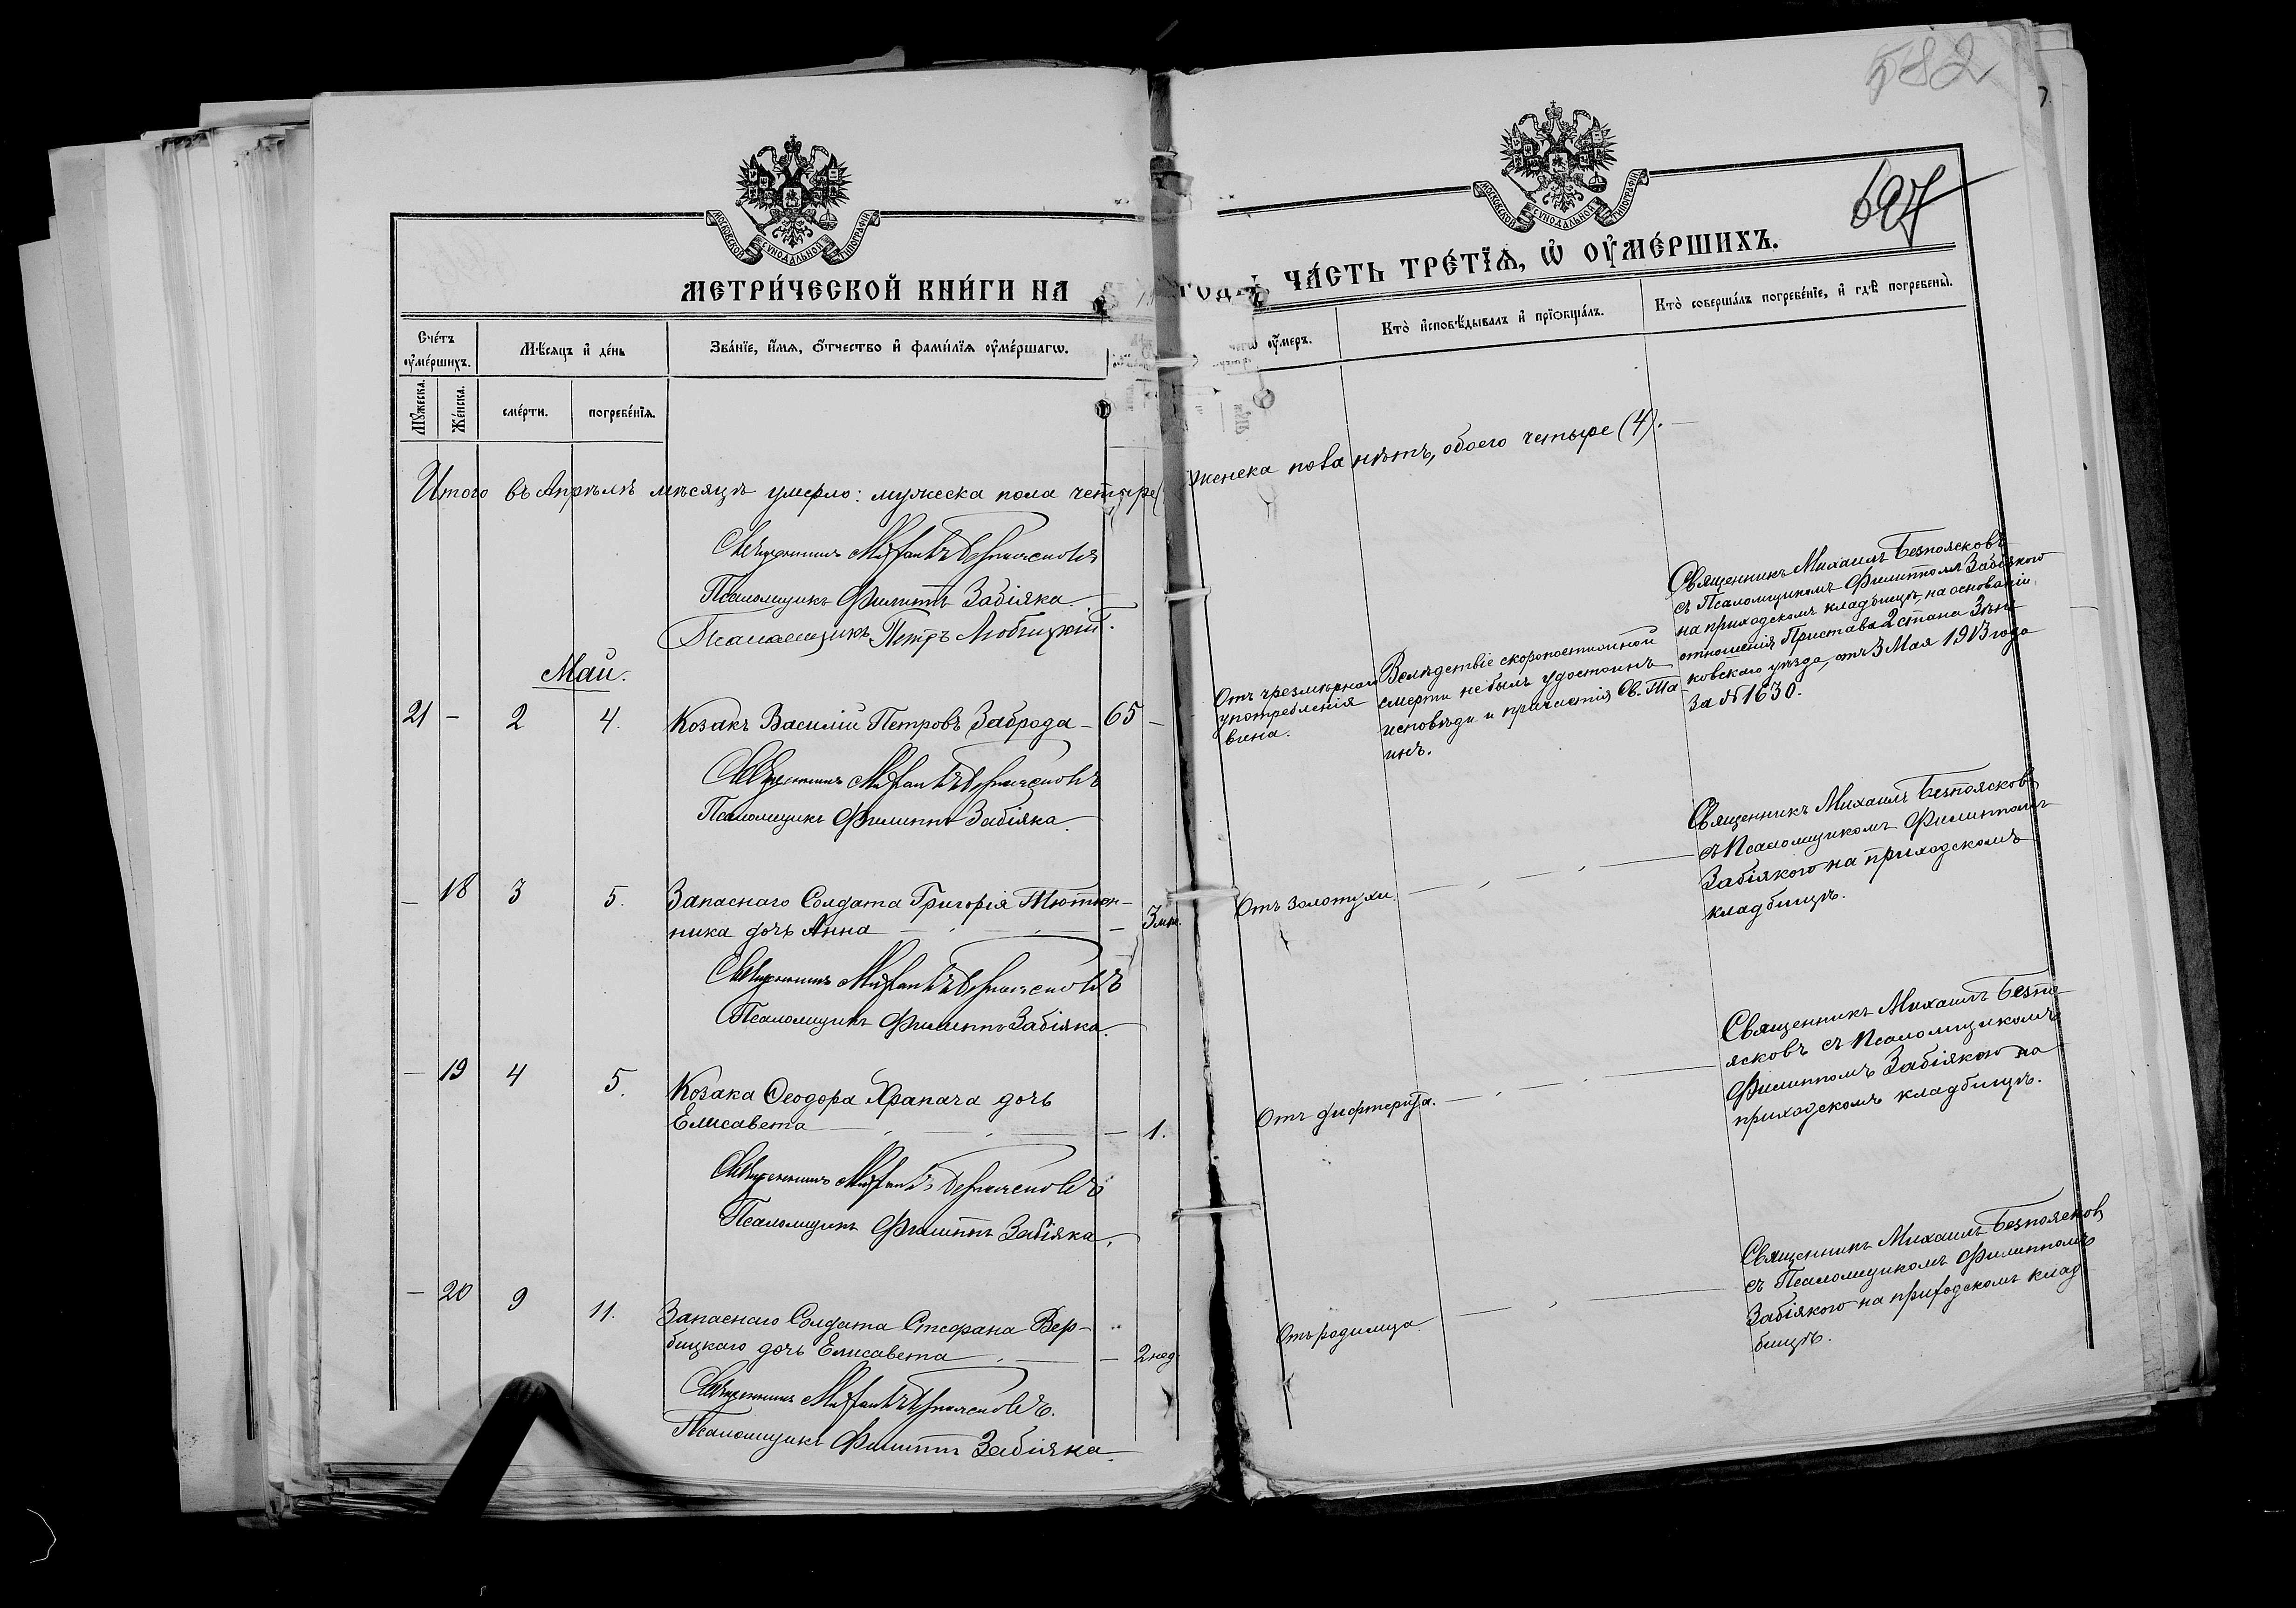 582
697
МОСКОВСКОЙ СѴНОДАЛЬНОЙ ТИПОГРАФІИ
МОСКОВСКОЙ СѴНОДАЛЬНОЙ ТИПОГРАФІИ
МЕТРИ́ЧЕСКОЙ КНИ́ГИ НА
ГОДЪ, ЧА́СТЬ ТРЕ́ТЇѦ, Ѡ҆ ОУ҆МЕ́РШИХЪ.
Сче́тъ оу҆ме́ршихъ.
Мѣ́сяцъ и҆ де́нь
Зва́нїе, и҆́мѧ, ѻ҆́тчество и҆ фами́лїѧ оу҆ме́ршагѡ.
оу҆́меръ.
Кто̀ и҆сповѣ́дывалъ и҆ прїѡбща́лъ.
Кто̀ соверша́лъ погребе́нїе, и҆ гдѣ̀ погребены̀.
Мꙋ́жеска.
Же́нска.
сме́рти.
погребе́нїѧ.
Итого въ Апрѣлѣ мѣсяцѣ умерло: мужеска пола четыре (
женска пола нѣтъ, обоего четыре (4).
Священникъ Михаилъ Безпоясковъ
Псаломщикъ Филиппъ Забіяка.
Псаломщикъ Петръ Любицкій.
Май.
21 — 2 4. Козакъ Василій Петровъ Заброда — 65 —
Отъ чрезмѣрнаго
употребленія
вина.
Вслѣдствіе скоропостижной
смерти не былъ удостоинъ
исповѣди и причастія Св. Та-
инъ.
Священникъ Михаилъ Безпоясковъ
съ Псаломщикомъ Филиппомъ Забіякою
на приходскомъ кладбищѣ, на основаніи
отношенія Пристава 2 стана Зѣнь-
ковскаго уѣзда, отъ 3 Мая 1913 года
За № 1630.
Священникъ Михаилъ Безпоясковъ
Псаломщикъ Филиппъ Забіяка.
— 18 3 5. Запаснаго Солдата Григорія Тютюн-
ника дочь Анна — 3 мѣс.
Отъ золотухи.
Священникъ Михаилъ Безпоясковъ
съ Псаломщикомъ Филиппомъ
Забіякою на приходскомъ
кладбищѣ.
Священникъ Михаилъ Безпоясковъ
Псаломщикъ Филиппъ Забіяка.
— 19 4 5. Козака Ѳеодора Храпача дочь
Елисавета — 1.
Отъ дифтерита.
Священникъ Михаилъ Безпо-
ясковъ съ Псаломщикомъ
Филиппомъ Забіякою на
приходскомъ кладбищѣ.
Священникъ Михаилъ Безпоясковъ
Псаломщикъ Филиппъ Забіяка.
— 20 9 11. Запаснаго Солдата Стефана Вер-
бицкаго дочь Елисавета — 2 нед.
Отъ родимца.
Священникъ Михаилъ Безпоясковъ
съ Псаломщикомъ Филиппомъ
Забіякою на приходскомъ клад-
бищѣ.
Священникъ Михаилъ Безпоясковъ.
Псаломщикъ Филиппъ Забіяка.